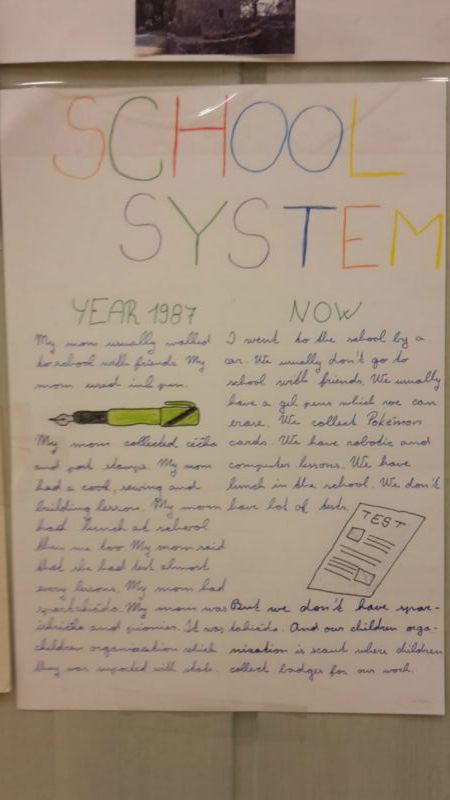 SCHOOL
SYSTEM
YEAR 1987
My mom usually walked
to school with friends. My
mom used ink pen.
My mom collected céčka
and post stamps. My mom
had a cook, sewing and
building lessons. My mom
had lunch at school
then me too. My mom said
that she had test almost
every lessons. My mom had
spartakiáda. My mom was
iskřička and pionier. It was
children organization which
they was suported with state.
NOW
I went to the school by a
car. We usually don't go to
school with friends. We usually
have a gel pens which we can
erase. We collect Pokémon
cards. We have robotic and
computer lessons. We have
lunch in the school. We don't
have lot of tests.
TEST
But we don't have spar-
takiáda. And our children orga-
nization is scout where children
collect badges for our work.